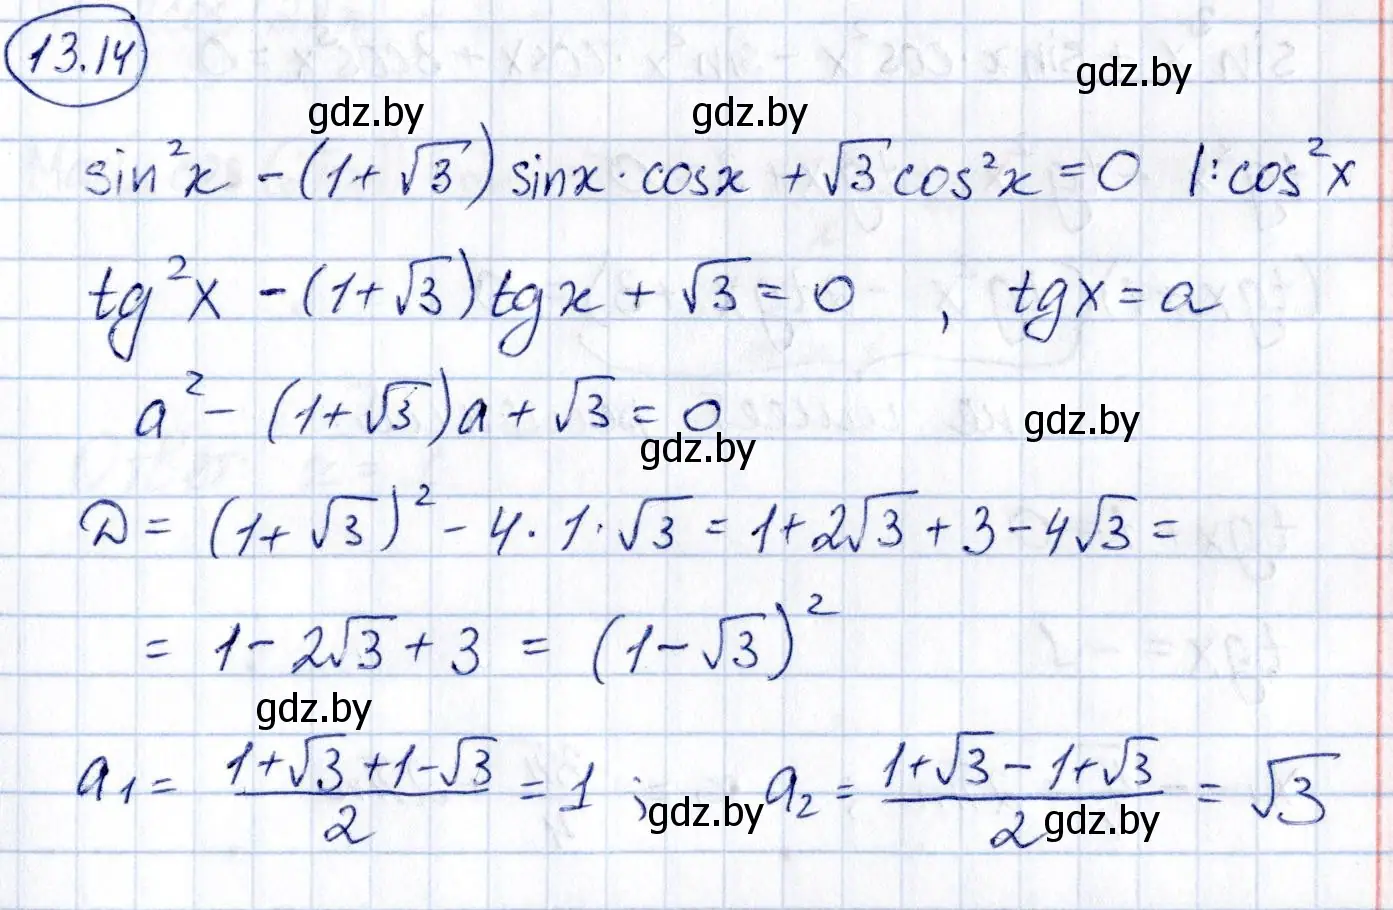 13.14
gdz.by
gdz.by gdz.by
sin²x - (1+√3) sinx·cosx + √3cos²x = 0 |:cos²x
tg²x - (1+√3)tgx + √3 = 0 , tgx = a
a² - (1+√3)a + √3 = 0
gdz.by
gdz.by
D = (1+√3)² - 4·1·√3 = 1+2√3+3-4√3 =
= 1-2√3+3 = (1-√3)²
gdz.by
a₁ = (1+√3+1-√3)/2 = 1 ; a₂ = (1+√3-1+√3)/2 = √3
gdz.by gdz.by